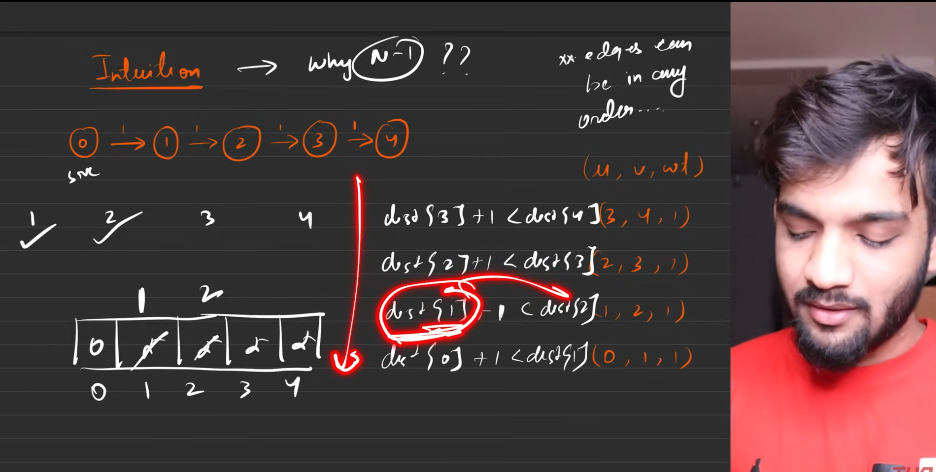 Intuition → Why N-1 ??
** edges can
be in any
order...
0 → 1 → 2 → 3 → 4
1 1 1 1
src
(u, v, wt)
1 2 3 4
dist[3] + 1 < dist[4] (3, 4, 1)
dist[2] + 1 < dist[3] (2, 3, 1)
dist[1] + 1 < dist[2] (1, 2, 1)
dist[0] + 1 < dist[1] (0, 1, 1)
1 2
0
0 1 2 3 4